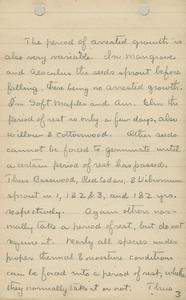 The period of arrested growth is
also very variable. In Mangrove
and Aesculus the seeds sprout before
falling, there being no arrested growth.
In Soft Maples and Am. Elm the
period of rest is only a few days, also
Willow & Cottonwood. Other seeds
cannot be forced to germinate until
a certain period of rest has passed.
Thus Basswood, Red Cedar, & Viburnum
sprout in 1, 1&2&3, and 1&2 yrs.
respectively. Again others nor-
mally take a period of rest, but do
not require it. Nearly all species under
proper thermal & moisture conditions
can be forced into a period of rest, whether
they normally take it or not. Thus
3